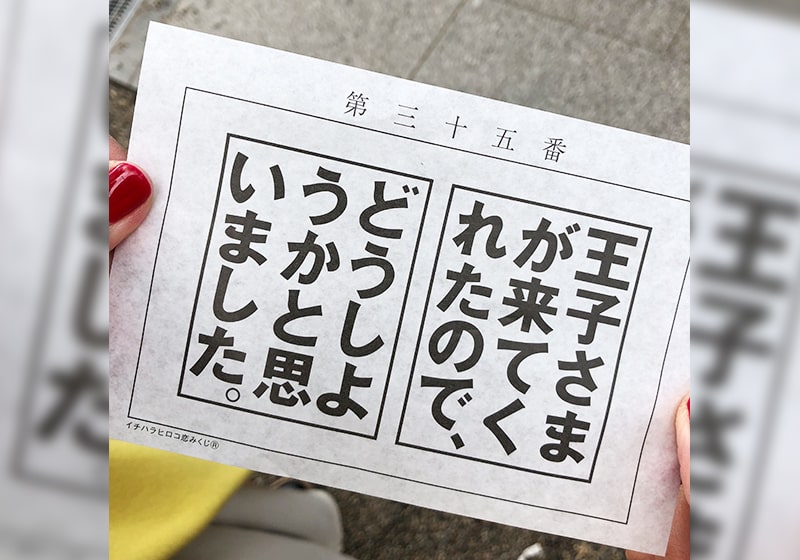 第三十五番
王子さま
が来てく
れたので、
どうしよ
うかと思
いました。
イチハラヒロコ恋みくじ®